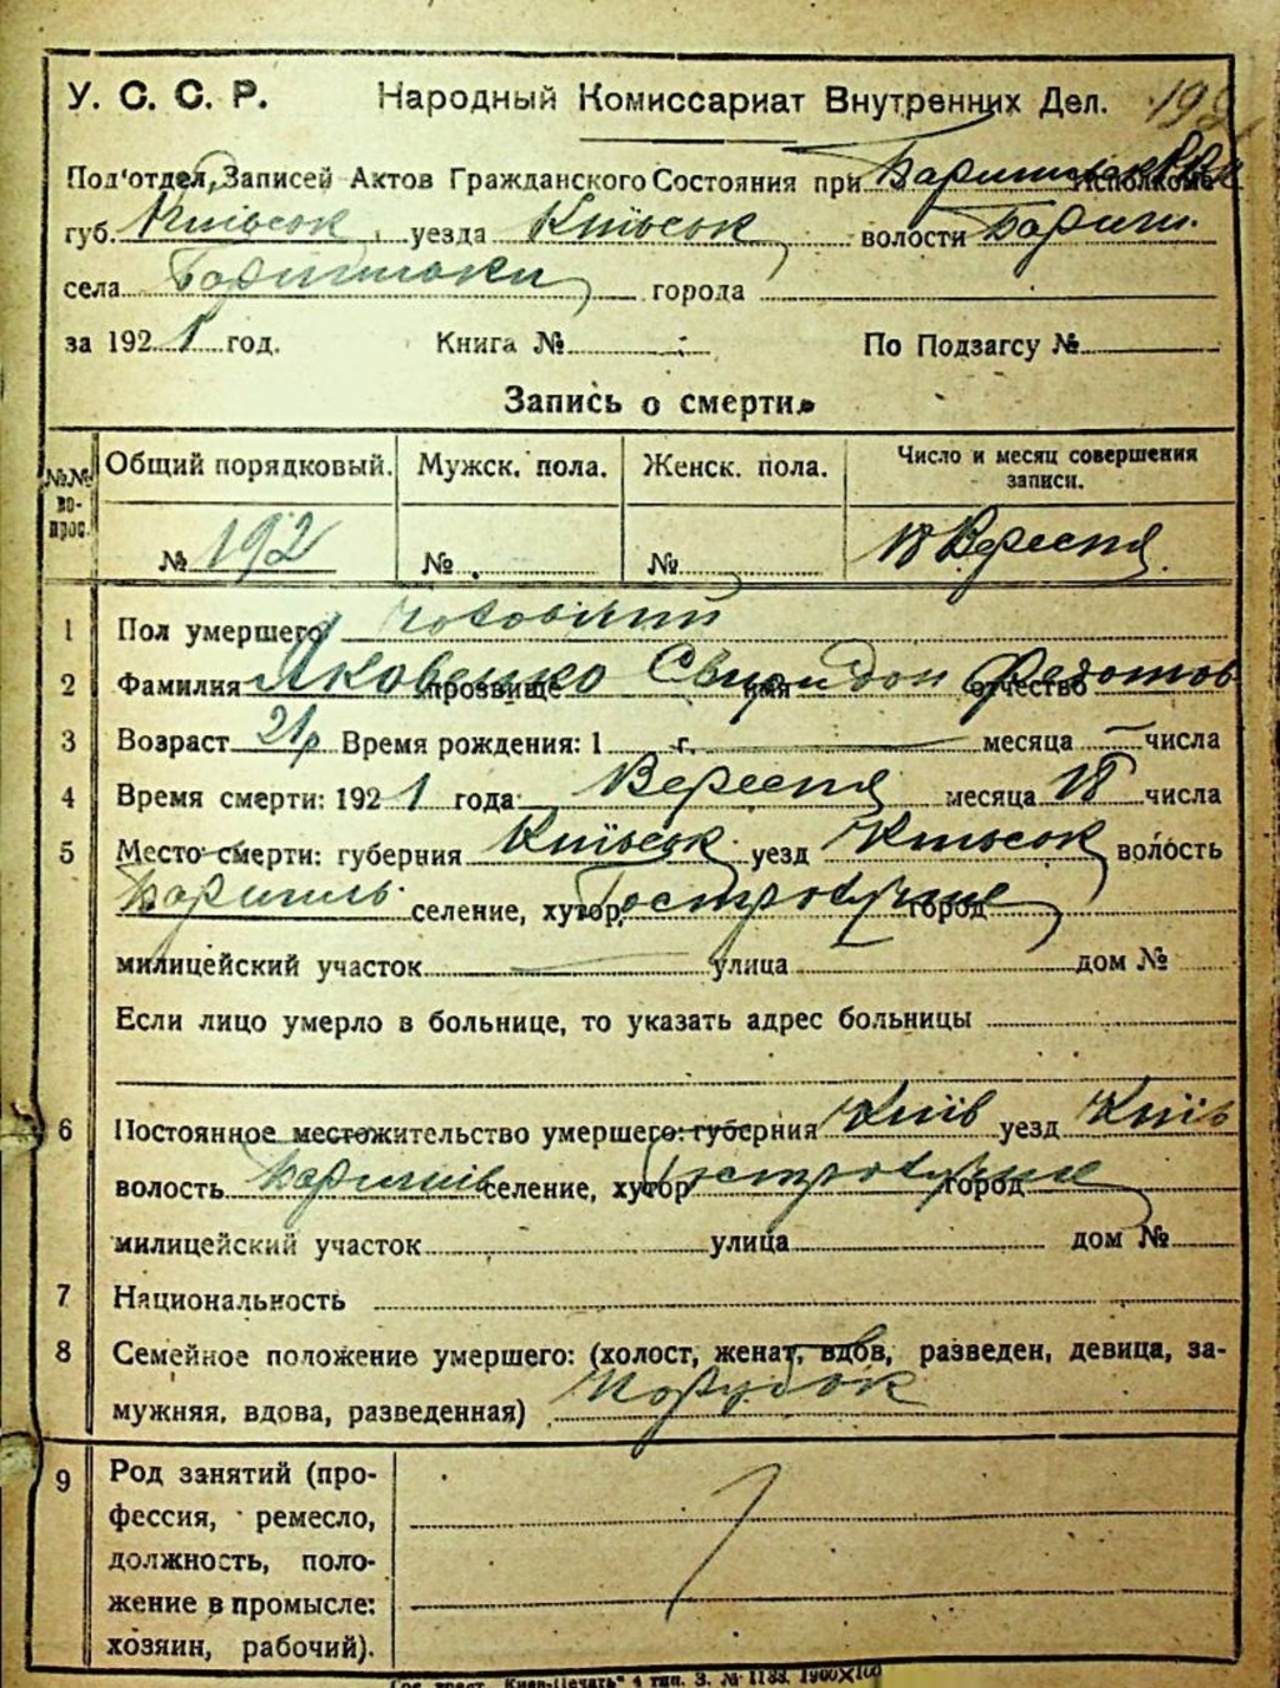 У. С. С. Р. Народный Комиссариат Внутренних Дел.
Под'отдел, Записей Актов Гражданского Состояния при Исполкоме
губ. Київськ уезда Київськ волости Бариш.
села города
за 192 1 год. Книга № По Подзагсу №
Запись о смерти.
№№ вопрос. Общий порядковый. Мужск. пола. Женск. пола. Число и месяц совершения записи.
№ 192 № № 18 Вересня
1 Пол умершего чоловічий
2 Фамилия Яковенко прозвище Свиридон имя Федотов отчество
3 Возраст 21р Время рождения: 1 г. месяца числа
4 Время смерти: 192 1 года Вересня месяца 18 числа
5 Место смерти: губерния Київськ уезд Київськ волость
Баришів селение, хутор Гостролуччє город
милицейский участок улица дом №
Если лицо умерло в больнице, то указать адрес больницы
6 Постоянное местожительство умершего: губерния Київ уезд Київ
волость Баришів селение, хутор Гостролуччє город
милицейский участок улица дом №
7 Национальность
8 Семейное положение умершего: (холост, женат, вдов, разведен, девица, за-
мужняя, вдова, разведенная) Парубок
9 Род занятий (про-
фессия, ремесло,
должность, поло-
жение в промысле:
хозяин, рабочий).
Гос. трест „Киев-Печать" 4 тип. З. № 1133. 1900X100